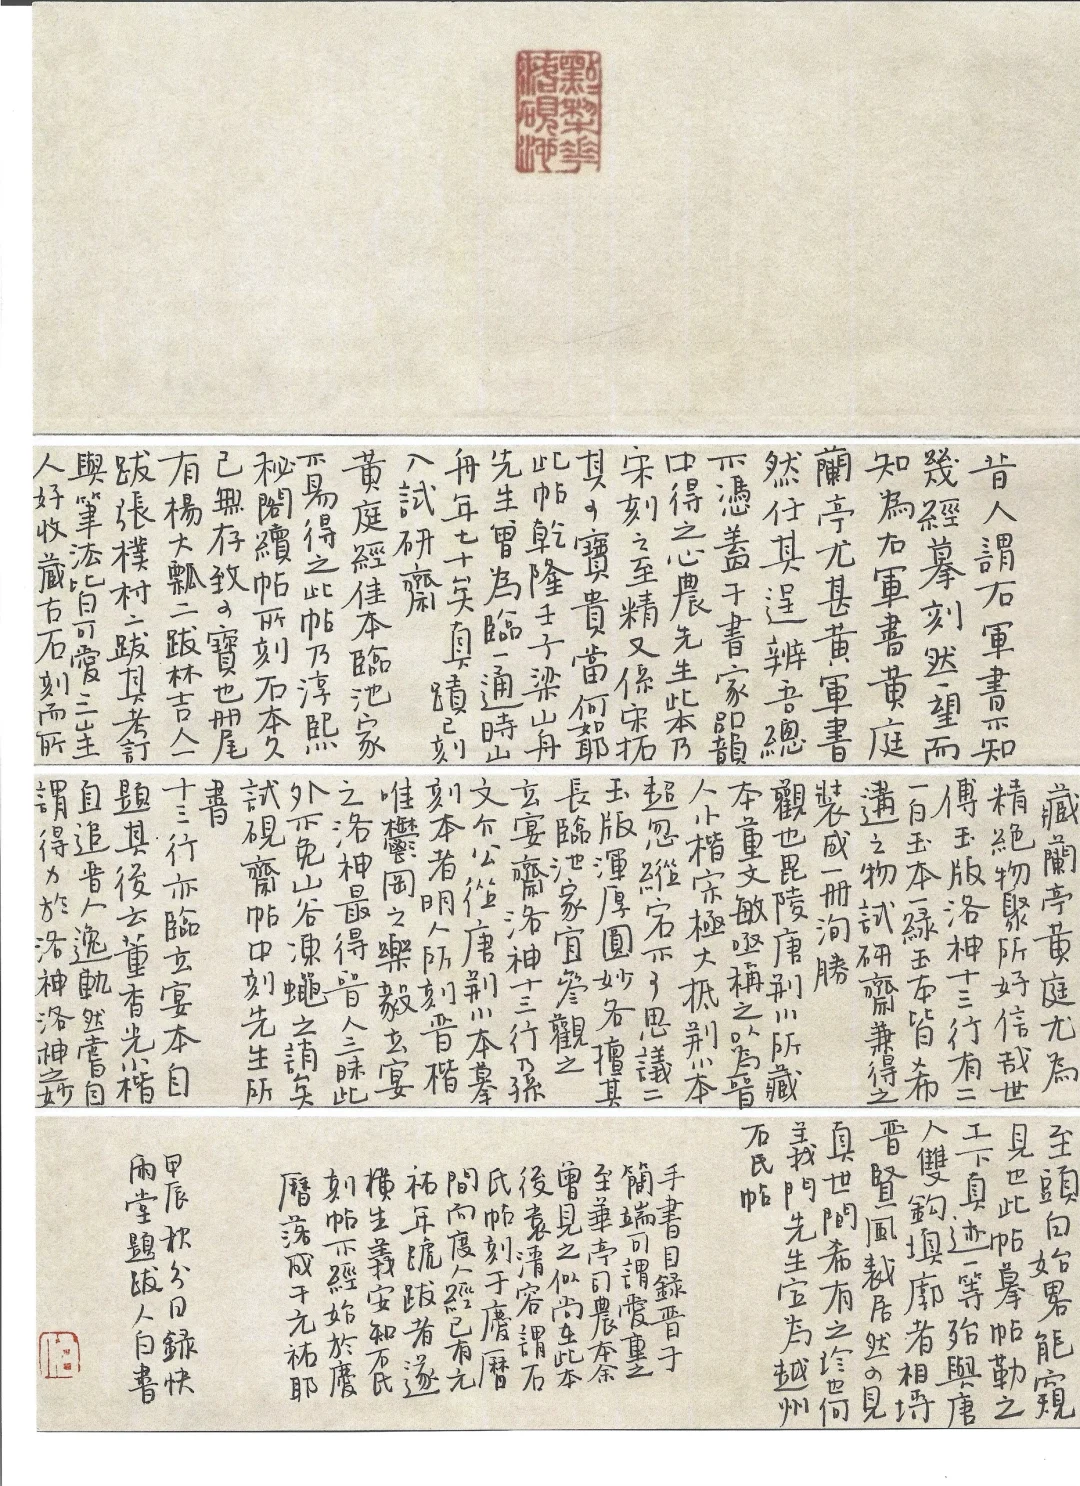 點黎花
落硯池
昔人謂右軍書不知
幾經摹刻然一望而
知為右軍書黃庭
蘭亭尤甚黃軍書
然任其逞辨吾總
不憑蓋于書家品韻
中得之心農先生此本乃
宋刻之至精又係宋拓
其可寶貴當何如耶
此帖乾隆壬子梁山舟
先生曾為臨一通時山
舟年七十矣真蹟已刻
入試研齋
黃庭經佳本臨池家
不易得之此帖乃淳熙
秘閣續帖所刻石本久
已無存致可寶也冊尾
有楊大瓢二跋林吉人一
跋張樸村二跋其考訂
與筆法皆可愛二出主
人好收藏古石刻而所
藏蘭亭黃庭尤為
精絕物聚所好信哉世
傳玉版洛神十三行有二
一白玉本一綠玉本皆希
遘之物試研齋兼得之
裝成一冊洵勝
觀也毘陵唐荊川所藏
本董文敏亟稱之以為晉
人小楷宗極大抵荊川本
超忽縱宕不可思議二
玉版渾厚圓妙各擅其
長臨池家宜參觀之
玄宴齋洛神十三行乃孫
文介公從唐荊川本摹
刻本者明人所刻晉楷
唯鬱岡之樂毅玄宴
之洛神最得晉人三昧此
外不免山谷凍蠅之誚矣
試硯齋帖中刻先生所
書
十三行亦臨玄宴本自
題其後云董香光小楷
直追晉人逸軌然嘗自
謂得力於洛神洛神之妙
至頭白始畧能窺
見也此帖摹帖勒之
工下真迹一等殆與唐
人雙鉤填廓者相埒
晉賢風裁居然可見
真世間希有之珍也何
義門先生定為越州
石氏帖
手書目錄晉于
簡端可謂愛重之
至華亭司農本余
曾見之似尚在此本
後袁清容謂石
氏帖刻于慶曆
間而度人經已有元
祐年號跋者遂
橫生義安知石氏
刻帖不經始於慶
曆落成于元祐耶
甲辰秋分日錄快
雨堂題跋人白書